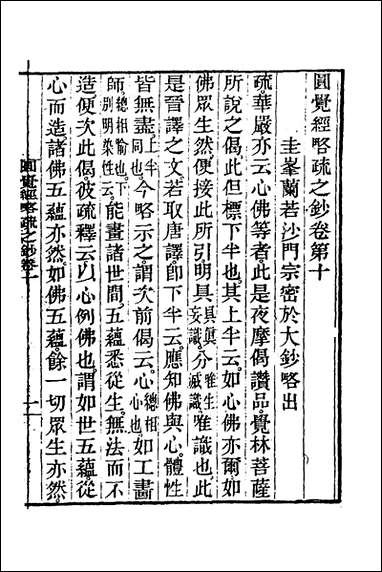 圓覺經畧疏之鈔卷第十
圭峯蘭若沙門宗密於大鈔畧出
疏華嚴亦云心佛等者此是夜摩偈讚品覺林菩薩
所說之偈此但標下半也其上半云如心佛亦爾如
佛眾生然便接此所引明具具眞妄識分唯生滅識唯識也此
是晉譯之文若取唐譯卽下半云應知佛與心體性
皆無盡上半同也今畧示之謂次前偈云心總相心也如工畫
師總相喻也下別明染性云能畫諸世間五蘊悉從生無法而不
造便次此偈彼疏釋云以心例佛也謂如世五蘊從
心而造諸佛五蘊亦然如佛五蘊餘一切眾生亦然
圓覺經畧疏之鈔卷十
一